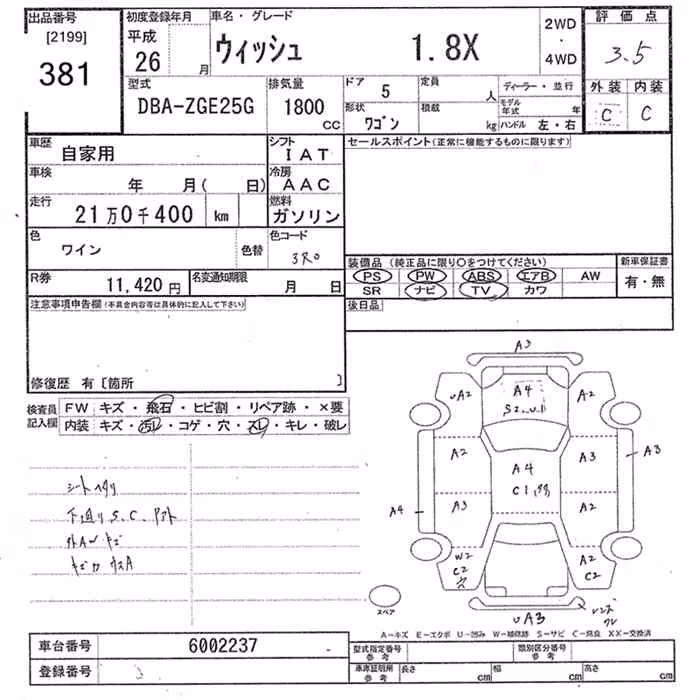 出品番号
[2199]
381
初度登録年月
平成
26 月
車名・グレード
ウィッシュ 1.8X
2WD
・
4WD
評価点
3.5
外装 内装
C C
型式
DBA-ZGE25G
排気量
1800
CC
ドア 5
形状
ワゴン
定員
人
積載
kg
ディーラー・並行
モデル
年式 年
ハンドル 左・右
車歴
自家用
シフト
IAT
車検
年 月( 日)
冷房
AAC
走行
21万0千400 km
燃料
ガソリン
色
ワイン
色替
色コード
3R0
R券
11,420円
名変通知期限
月 日
セールスポイント(正常に機能するものに限ります)
装備品 (純正品に限り○をつけてください)
PS PW ABS エアB AW
SR ナビ TV カワ
新車保証書
有・無
後日品
注意事項申告欄(不具合内容等は具体的に記入して下さい)
修復歴 有〔箇所 〕
検査員
記入欄
FW キズ・飛石・ヒビ割・リペア跡・×要
内装 キズ・汚レ・コゲ・穴・スレ・キレ・破レ
シートヘタリ
下廻りS.C.
A3
uA2
A4
A2
A2
A4
A3
A3
A4
A3
A2
W2
C2
A2
C2
uA3
レンズ
スペア
A-キズ E-エクボ U-凹み W-補修跡 S-サビ C-腐食 XX-交換済
車台番号 6002237
登録番号
型式指定番号
参考
類別区分番号
参考
車庫証明用
参考
長さ cm
幅 cm
高さ cm